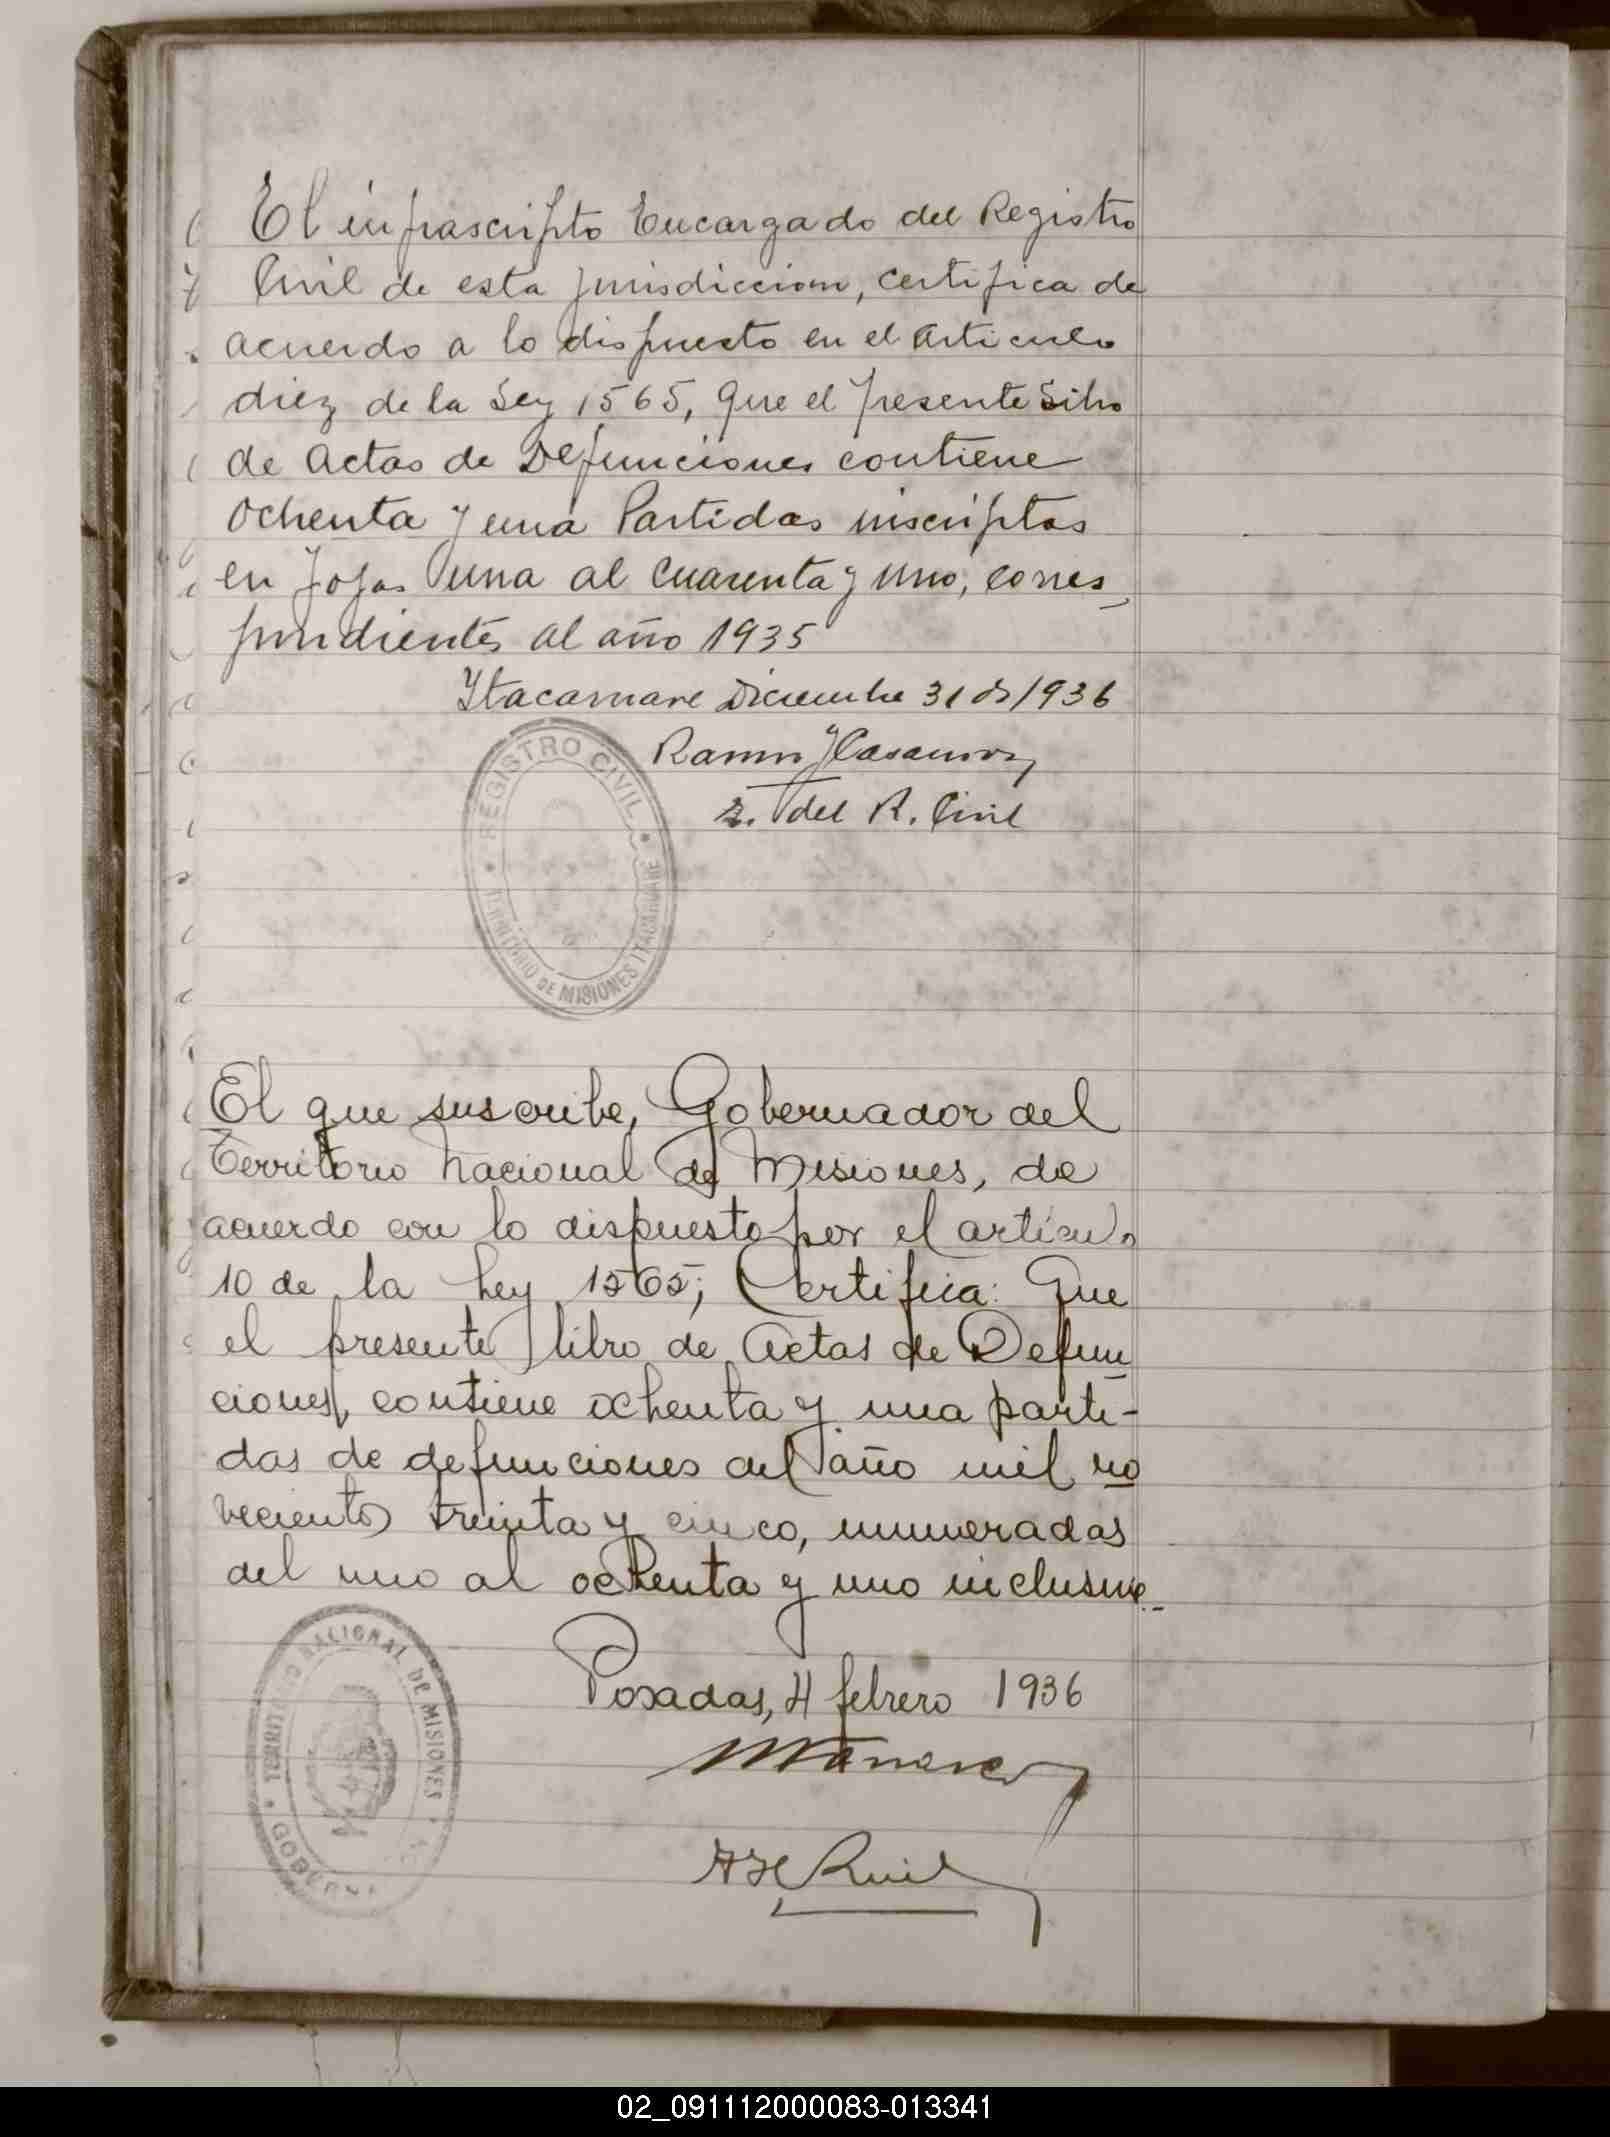 El infrascripto Encargado del Registro
Civil de esta jurisdiccion, certifica de
acuerdo a lo dispuesto en el articulo
diez de la Ley 1565, que el presente Libro
de actas de Defunciones contiene
ochenta y una Partidas inscriptas
en fojas una al cuarenta y uno, corres-
pondientes al año 1935
Itacaruare Diciembre 31 de 1936
Ramon J Casanova
E. del R. Civil
REGISTRO CIVIL
TERRITORIO DE MISIONES ITACARUARE
El que suscribe, Gobernador del
Territorio Nacional de Misiones, de
acuerdo con lo dispuesto por el articulo
10 de la Ley 1565; Certifica: Que
el presente libro de Actas de Defun
ciones, contiene ochenta y una parti-
das de defunciones del año mil no
veciento treinta y cinco, numeradas
del uno al ochenta y uno inclusive.-
Posadas, 4 febrero 1936
TERRITORIO NACIONAL DE MISIONES
02_091112000083-013341